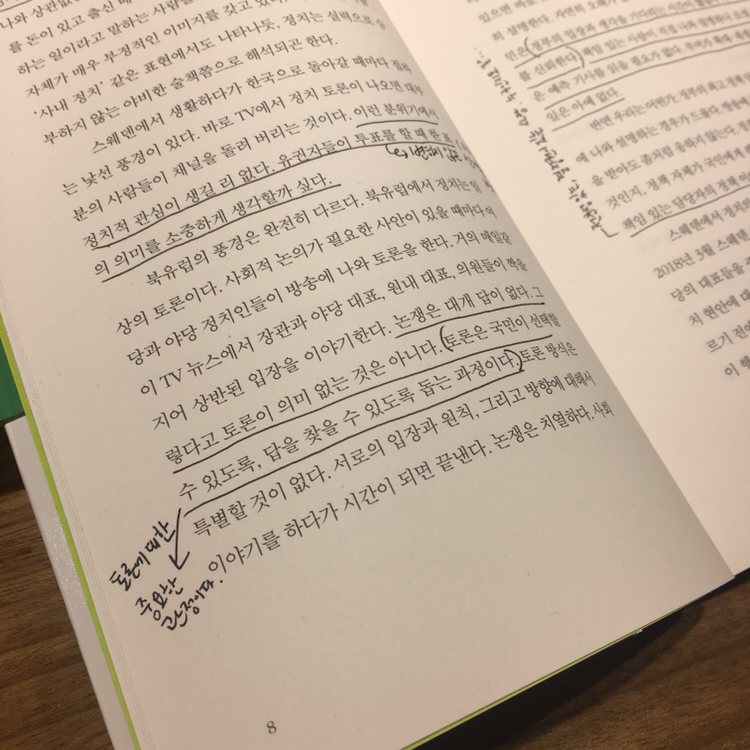 나와 상관없
를 돈이 있고 출신 배
하는 일이라고 말하는 사람
자체가 매우 부정적인 이미지를 갖고 있어
'사내 정치' 같은 표현에서도 나타나듯, 정치는 실력으로 승
부하지 않는 야비한 술책쯤으로 해석되곤 한다.
스웨덴에서 생활하다가 한국으로 돌아갈 때마다
는 낯선 풍경이 있다. 바로 TV에서 정치 토론이 나오면 대부
분의 사람들이 채널을 돌려 버리는 것이다. 이런 분위기에서
정치적 관심이 생길 리 없다. 유권자들이 투표를 할 때 한 표
의 의미를 소중하게 생각할까 싶다.
북유럽의 풍경은 완전히 다르다. 북유럽에서 정치는 일
상의 토론이다. 사회적 논의가 필요한 사안이 있을 때마다 여
당과 야당 정치인들이 방송에 나와 토론을 한다. 거의 매일같
이 TV 뉴스에서 장관과 야당 대표, 원내 대표, 의원들이 짝을
지어 상반된 입장을 이야기한다. 논쟁은 대개 답이 없다. 그
렇다고 토론이 의미 없는 것은 아니다. (토론은 국민이 선택할
수 있도록, 답을 찾을 수 있도록 돕는 과정이다.) 토론 방식은
특별할 것이 없다. 서로의 입장과 원칙, 그리고 방향에 대해서
이야기를 하다가 시간이 되면 끝낸다. 논쟁은 치열하다. 사회
토론에 대한
중요한
관점이다.
8
있으면
히 설명한다.
민은 (정부의 입장과 생각을 기다리는 시간이
를 신뢰한다.) 책임 있는 사람이 직접 나와 설명하고
은 예측 기사를 읽을 필요가 없다.
일은 아예 없다.
반면 우리는 어떤가. 정부의
에 나와 설명하는 경우가 드물다.
을 받아도 좀처럼 응하지 않는다.
것인지, 정책 자체가 국민에게
책임 있는 담당자의 정책
스웨덴에서 정치
2018년 3월 스웨덴
당의 대표들을
치 현안에 대
르기 전
이 행